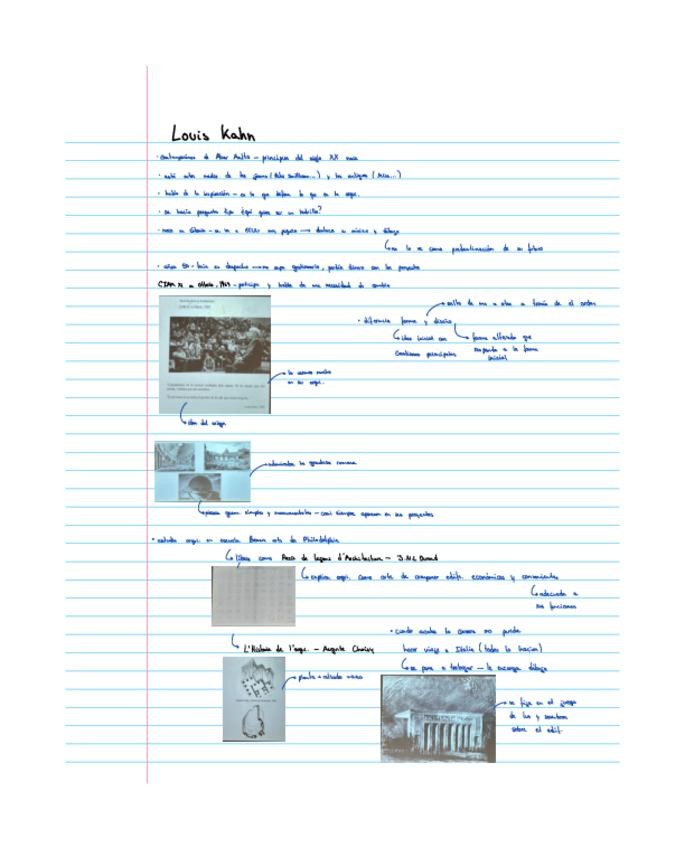 Louis Kahn
· contemporáneo de Alvar Aalto – principios del siglo XX nace
· está entre medias de los jovenes ( ) y los antiguos ( )
· habla de la inspiración – es lo que define lo que es la arqui.
· se hacía preguntas tipo ¿qué quiere ser un ladrillo?
· nace en Estonia – se va a EEUU muy pequeño → destaca en música y dibujo
no lo ve como predestinación de su futuro
· años 50 - tenía su despacho → no supo gestionarlo, perdía dinero con los proyectos
CIAM XI en Otterlo, 1959 - participa y habla de una necesidad de cambio
· diferencia forma y diseño
salto de una a otra a través de el orden
idea inicial con cuestiones principales
forma alterada que responde a la forma inicial
en su arqui.
idea del origen
admirador la grandeza romana
piezas geom. simples y monumentales – casi siempre aparecen en sus proyectos
· estudia arqui. en escuela Beaux arts de Philadelphia
libros como de leçons d'Architecture – J.N.L Durand
explica arqui. como arte de componer edifi. económicos y convenientes
adecuado a sus funciones
L'Histoire de l'arqui. – Auguste Choisy
planta + alzado + axo
· cuando acaba la carrera no puede
hacer viaje a Italia (todos lo hacían)
se pone a trabajar – le encarga dibujo
se fija en el juego
de luz y sombras
sobre el edifi.